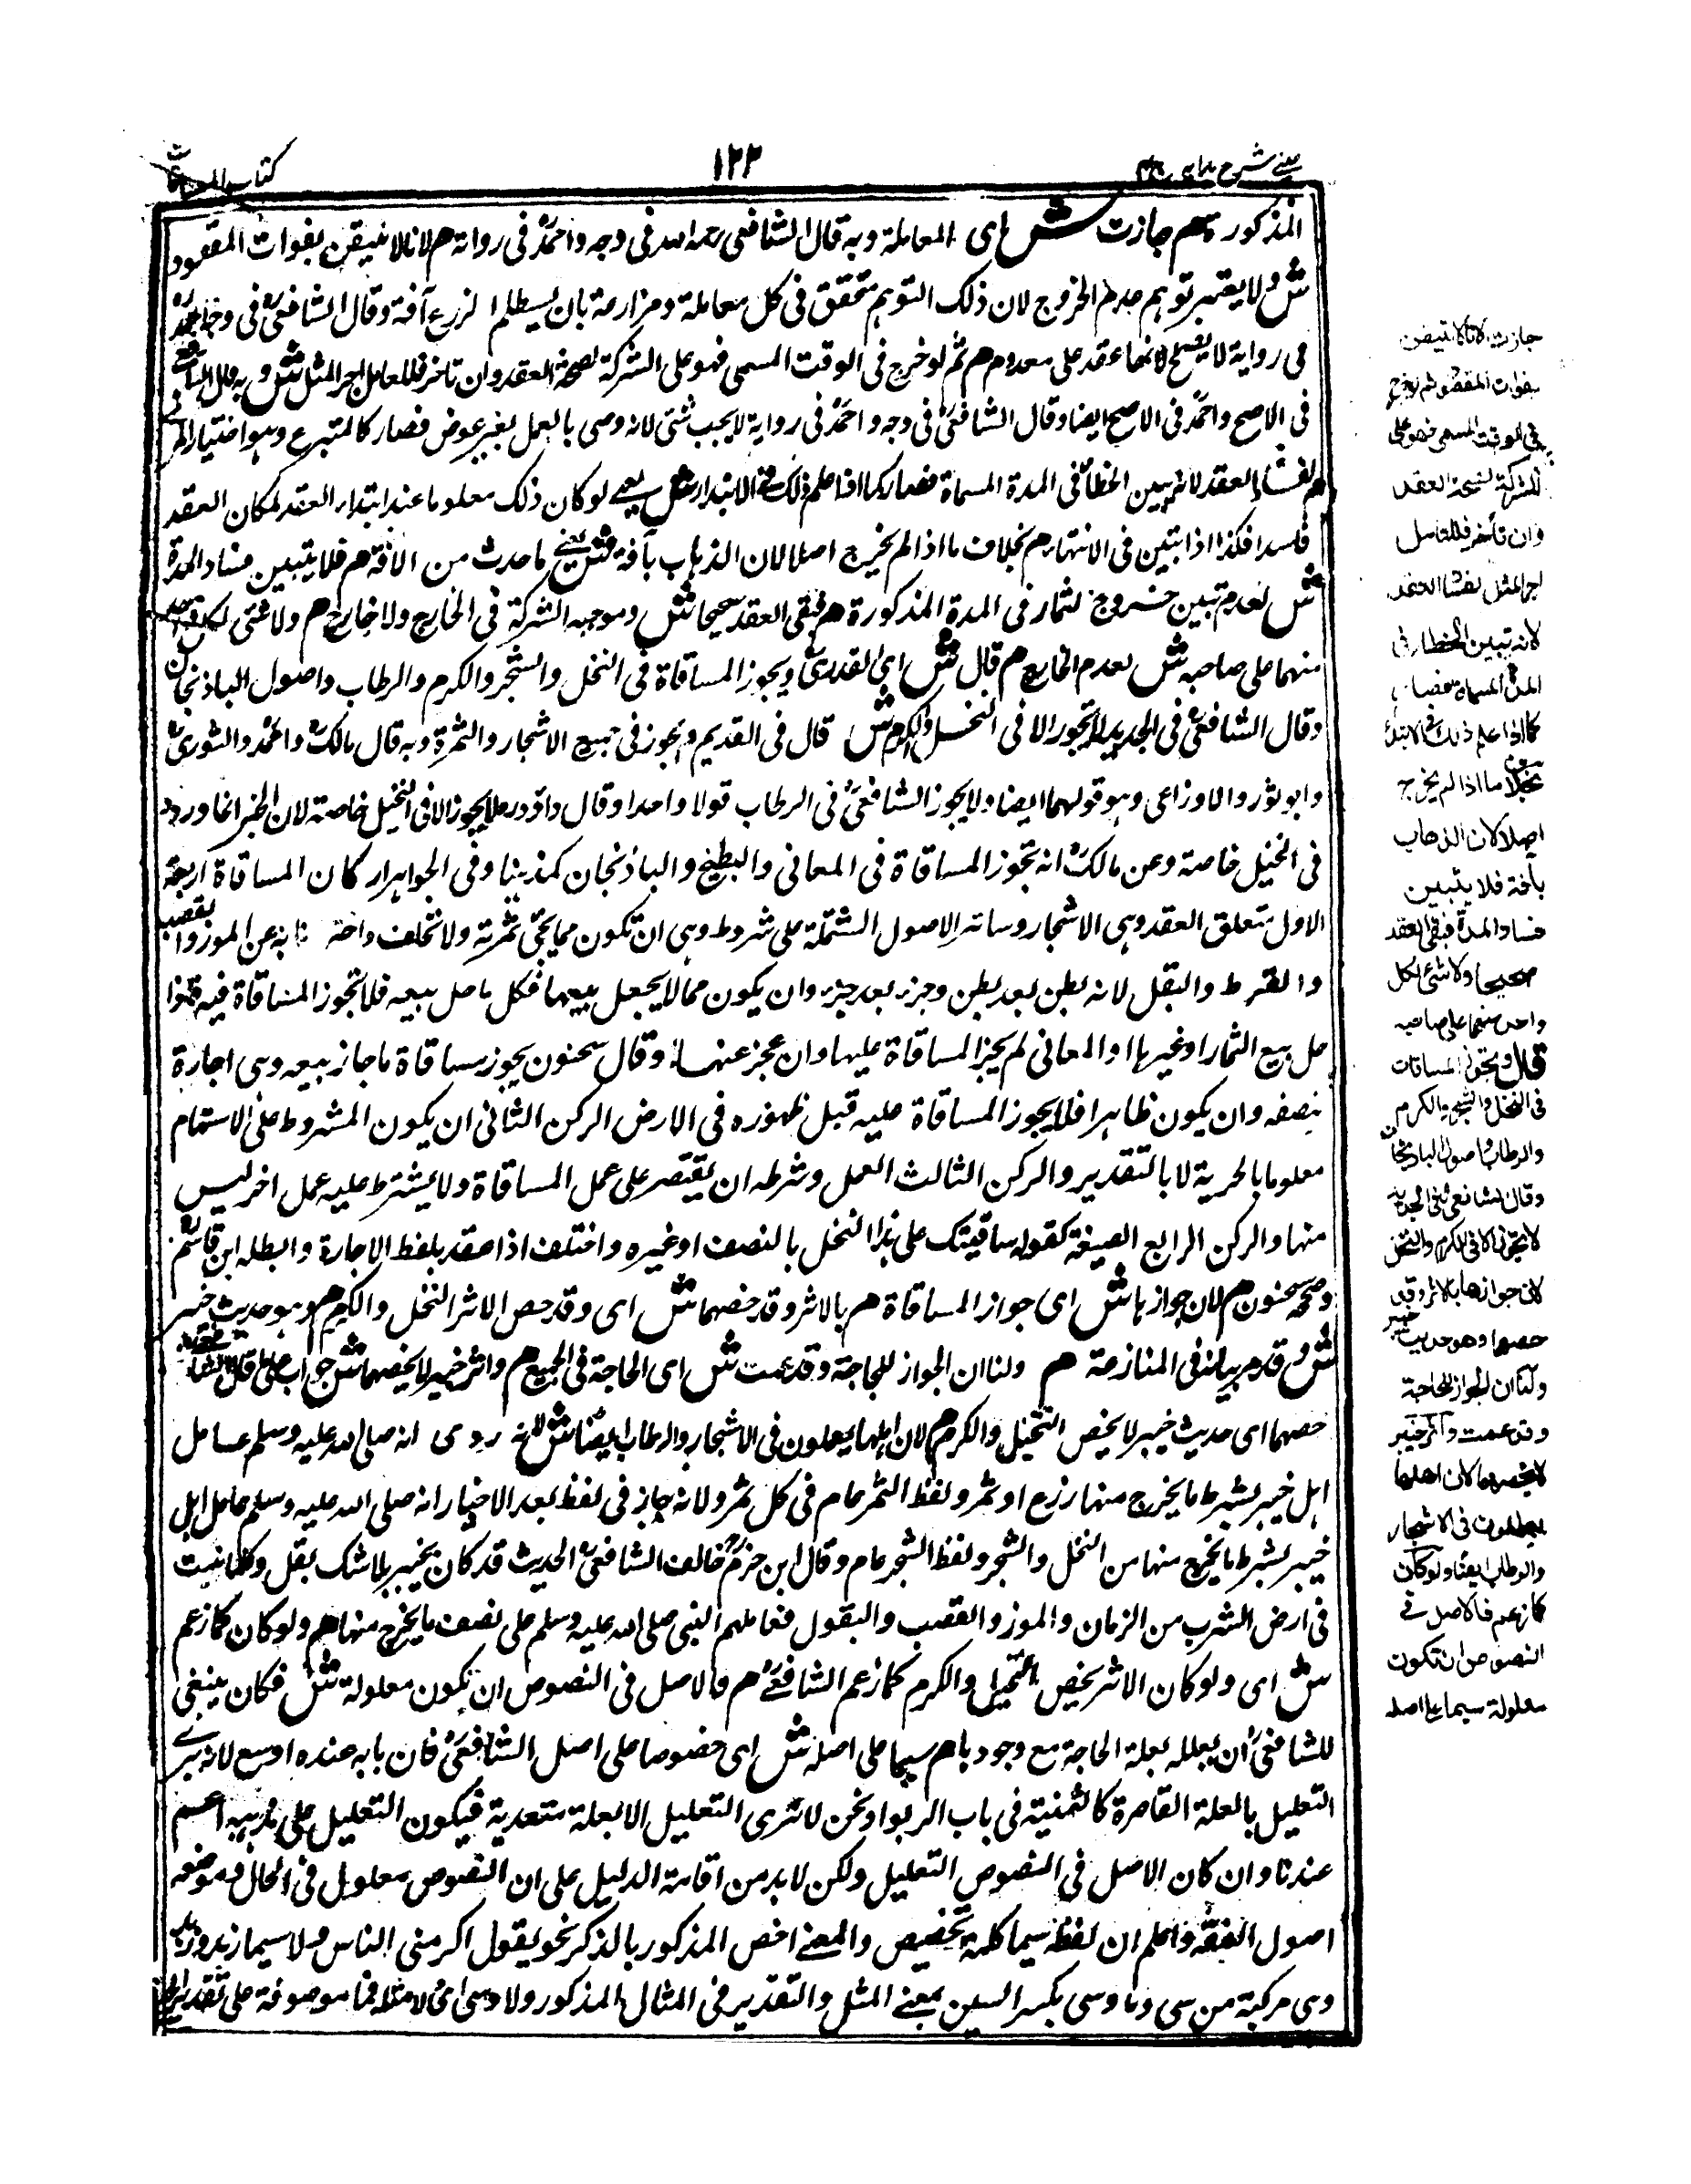 كتاب المساقات
١٢٢
عيني شرح هدايه
المذكورة م جازت ش اى المعاملة وبه قال الشافعى رحمه الله فى وجه واحمد فى رواية م لانا لا نتيقن بفوات المقصود
ش ولا يعتبر توهم عدم الخروج لان ذلك التوهم متحقق فى كل معاملة ومزارعة بان يصطلم الزرع آفة وقال الشافعى فى وجه واحمد
فى رواية لا يصح لانها عقد على معدوم م ثم لو خرج فى الوقت المسمى فهو على الشركة لصحة العقد وان تاخر فللعامل اجر المثل ش وبه قال الشافعى
فى الاصح واحمد فى الاصح ايضا وقال الشافعى فى وجه واحمد فى رواية لا يجب شئ لانه رضى بالعمل بغير عوض فصار كالمتبرع وهو اختيار المزنى
م لفساد العقد لانه تبين الخطأ فى المدة المسماة فصار كما اذا علم ذلك فى الابتداء ش يعنى لو كان ذلك معلوما عند ابتداء العقد لمكان العقد
فاسدا فكذا اذا تبين فى الانتهاء م بخلاف ما اذا لم يخرج اصلا لان الذهاب بآفة ش يعنى ما حدث من الافة م فلا يتبين فساد المدة
ش لعدم تبين خروج الثمار فى المدة المذكورة م فبقى العقد صحيحا ش وموجبه الشركة فى الخارج ولا خارج م ولا شئ لكل واحد
منهما على صاحبه ش لعدم الخارج م قال ش اى القدورى ويجوز المساقاة فى النخل والشجر والكرم والرطاب واصول الباذنجان
وقال الشافعى فى الجديد لا تجوز الا فى النخل والكرم ش قال فى القديم وتجوز فى جميع الاشجار والثمرة وبه قال مالك واحمد والثورى
وابو ثور والاوزاعى وهو قولهما ايضا ولا يجوز الشافعى فى الرطاب قولا واحدا وقال داؤد رحمه لا يجوز الا فى النخيل خاصة لان الخبر انما ورد
فى النخيل خاصة وعن مالك انه تجوز المساقاة فى المعانى والبطيخ والباذنجان كمذهبنا وفى الجواهر اركان المساقاة اربعة
الاول متعلق العقد وهى الاشجار وسائر الاصول المشتملة على شروط وهى ان تكون مما يجئى ثمرته ولا تخلف واحترزنا به عن الموز والقصب
والقرط والبقل لانه بطن بعد بطن وجزه بعد جزه وان يكون مما لا يحل بيعها فكل ما حل بيعه فلا تجوز المساقاة فيه فمتى
حل بيع الثمار او غيرها او المعانى لم يجز المساقاة عليها وان عجز عنها وقال سحنون يجوز مساقاة ما جاز بيعه وهى اجارة
بنصفه وان يكون ظاهرا فلا يجوز المساقاة عليه قبل ظهوره فى الارض الركن الثانى ان يكون المشروط على الاستهام
معلوما بالجزئية لا بالتقدير والركن الثالث العمل وشرطه ان يقتصر على عمل المساقاة ولا يشترط عليه عمل اخر ليس
منها والركن الرابع الصيغة كقوله ساقيتك على هذا النخل بالنصف او غيره واختلف اذا عقد بلفظ الاجارة وابطله ابن قاسم
وصححه سحنون م لان جوازها ش اى جواز المساقاة م بالاثر وقد خصهما ش اى وقد خص الاثر النخل والكرم م وهو حديث خيبر
ش وقد مر بيانه فى المزارعة م ولنا ان الجواز للحاجة وقد عمت ش اى الحاجة فى الجميع م واثر خيبر لا يخصهما ش جواب على قول الشافعى
خصهما اى حديث خيبر لا يخص النخيل والكرم م لان اهلها يعملون فى الاشجار والرطاب ايضا ش لانه روى انه صلى الله عليه وسلم عامل
اهل خيبر بشرط ما يخرج منها زرع او ثمر ولفظ الثمر عام فى كل ثمر ولانه جاز فى لفظ بعد الاخبار انه صلى الله عليه وسلم عامل اهل
خيبر بشرط ما يخرج منها من النخل والشجر ولفظ الشجر عام وقال ابن حزم خالف الشافعى الحديث قد كان بخيبر بلا شك بقل وكلما ينبت
فى ارض الشرب من الرمان والموز والقصب والبقول فعاملهم النبى صلى الله عليه وسلم على نصف ما يخرج منها م ولو كان كما زعم
ش اى ولو كان الاثر يخص النخيل والكرم كما زعم الشافعى م فالاصل فى النصوص ان تكون معلولة ش فكان ينبغى
للشافعى ان يعلله بعلة الحاجة مع وجودها م سيما على اصله ش اى خصوصا على اصل الشافعى فان بابه عنده اوسع لانه يرى
التعليل بالعلة القاصرة كالثمنية فى باب الربوا ونحن لا نرى التعليل الا بعلة متعدية فيكون التعليل على مذهبه اعم
عندنا وان كان الاصل فى النصوص التعليل ولكن لا بد من اقامة الدليل على ان النصوص معلول فى الحال وموضعه
اصول الفقه واعلم ان لفظ سيما كلمة تخصيص والمعنى اخص المذكور بالذكر نحو يقول اكرمنى الناس ولا سيما زيد وزيد
وهى مركبة من سى وما وسى بكسر السين بمعنى المثل والتقدير فى المثال المذكور ولا سى اى لا مثل فما موصوفة على تقدير
جازت لانا لا نتيقن
بفوات المقصود ثم لو خرج
فى الوقت المسمى فهو على
الشركة لصحة العقد
وان تأخر فللعامل
اجر المثل لفساد العقد
لانه تبين الخطا فى
المدة المسماة فصار
كما اذا علم ذلك فى الابتداء
بخلاف ما اذا لم يخرج
اصلا لان الذهاب
بآفة فلا يتبين
فساد المدة فبقى العقد
صحيحا ولا شئ لكل
واحد منهما على صاحبه
قال وتجوز المساقات
فى النخل والشجر والكرم
والرطاب واصول الباذنجان
وقال الشافعى فى الجديد
لا تجوز الا فى الكرم والنخل
لان جوازها بالاثر وقد
خصهما وهو حديث خيبر
ولنا ان الجواز للحاجة
وقد عمت واثر خيبر
لا يخصهما لان اهلها
يعملون فى الاشجار
والرطاب ايضا ولو كان
كما زعم فالاصل فى
النصوص ان تكون
معلولة سيما على اصله